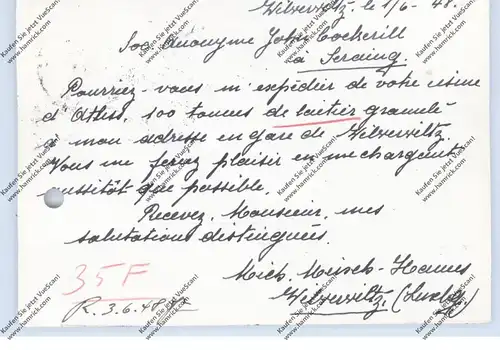 Wilverwiltz, le 1/6 - 48.
Soc Anonyme John Cockerill
à Seraing.
Pourriez-vous m'expédier de votre usine
d'Athus, 100 tonnes de laitier granulé
à mon adresse en gare de Wilverwiltz.
Vous me feriez plaisir en me chargeant
aussitôt que possible.
Recevez, Monsieur, mes
salutations distinguées.
35 F
Mich. Mirsch-Hames
Wilverwiltz (Luxbg)
R. 3.6.48
Kaufen Sie jetzt VueScan!
www.hamrick.com